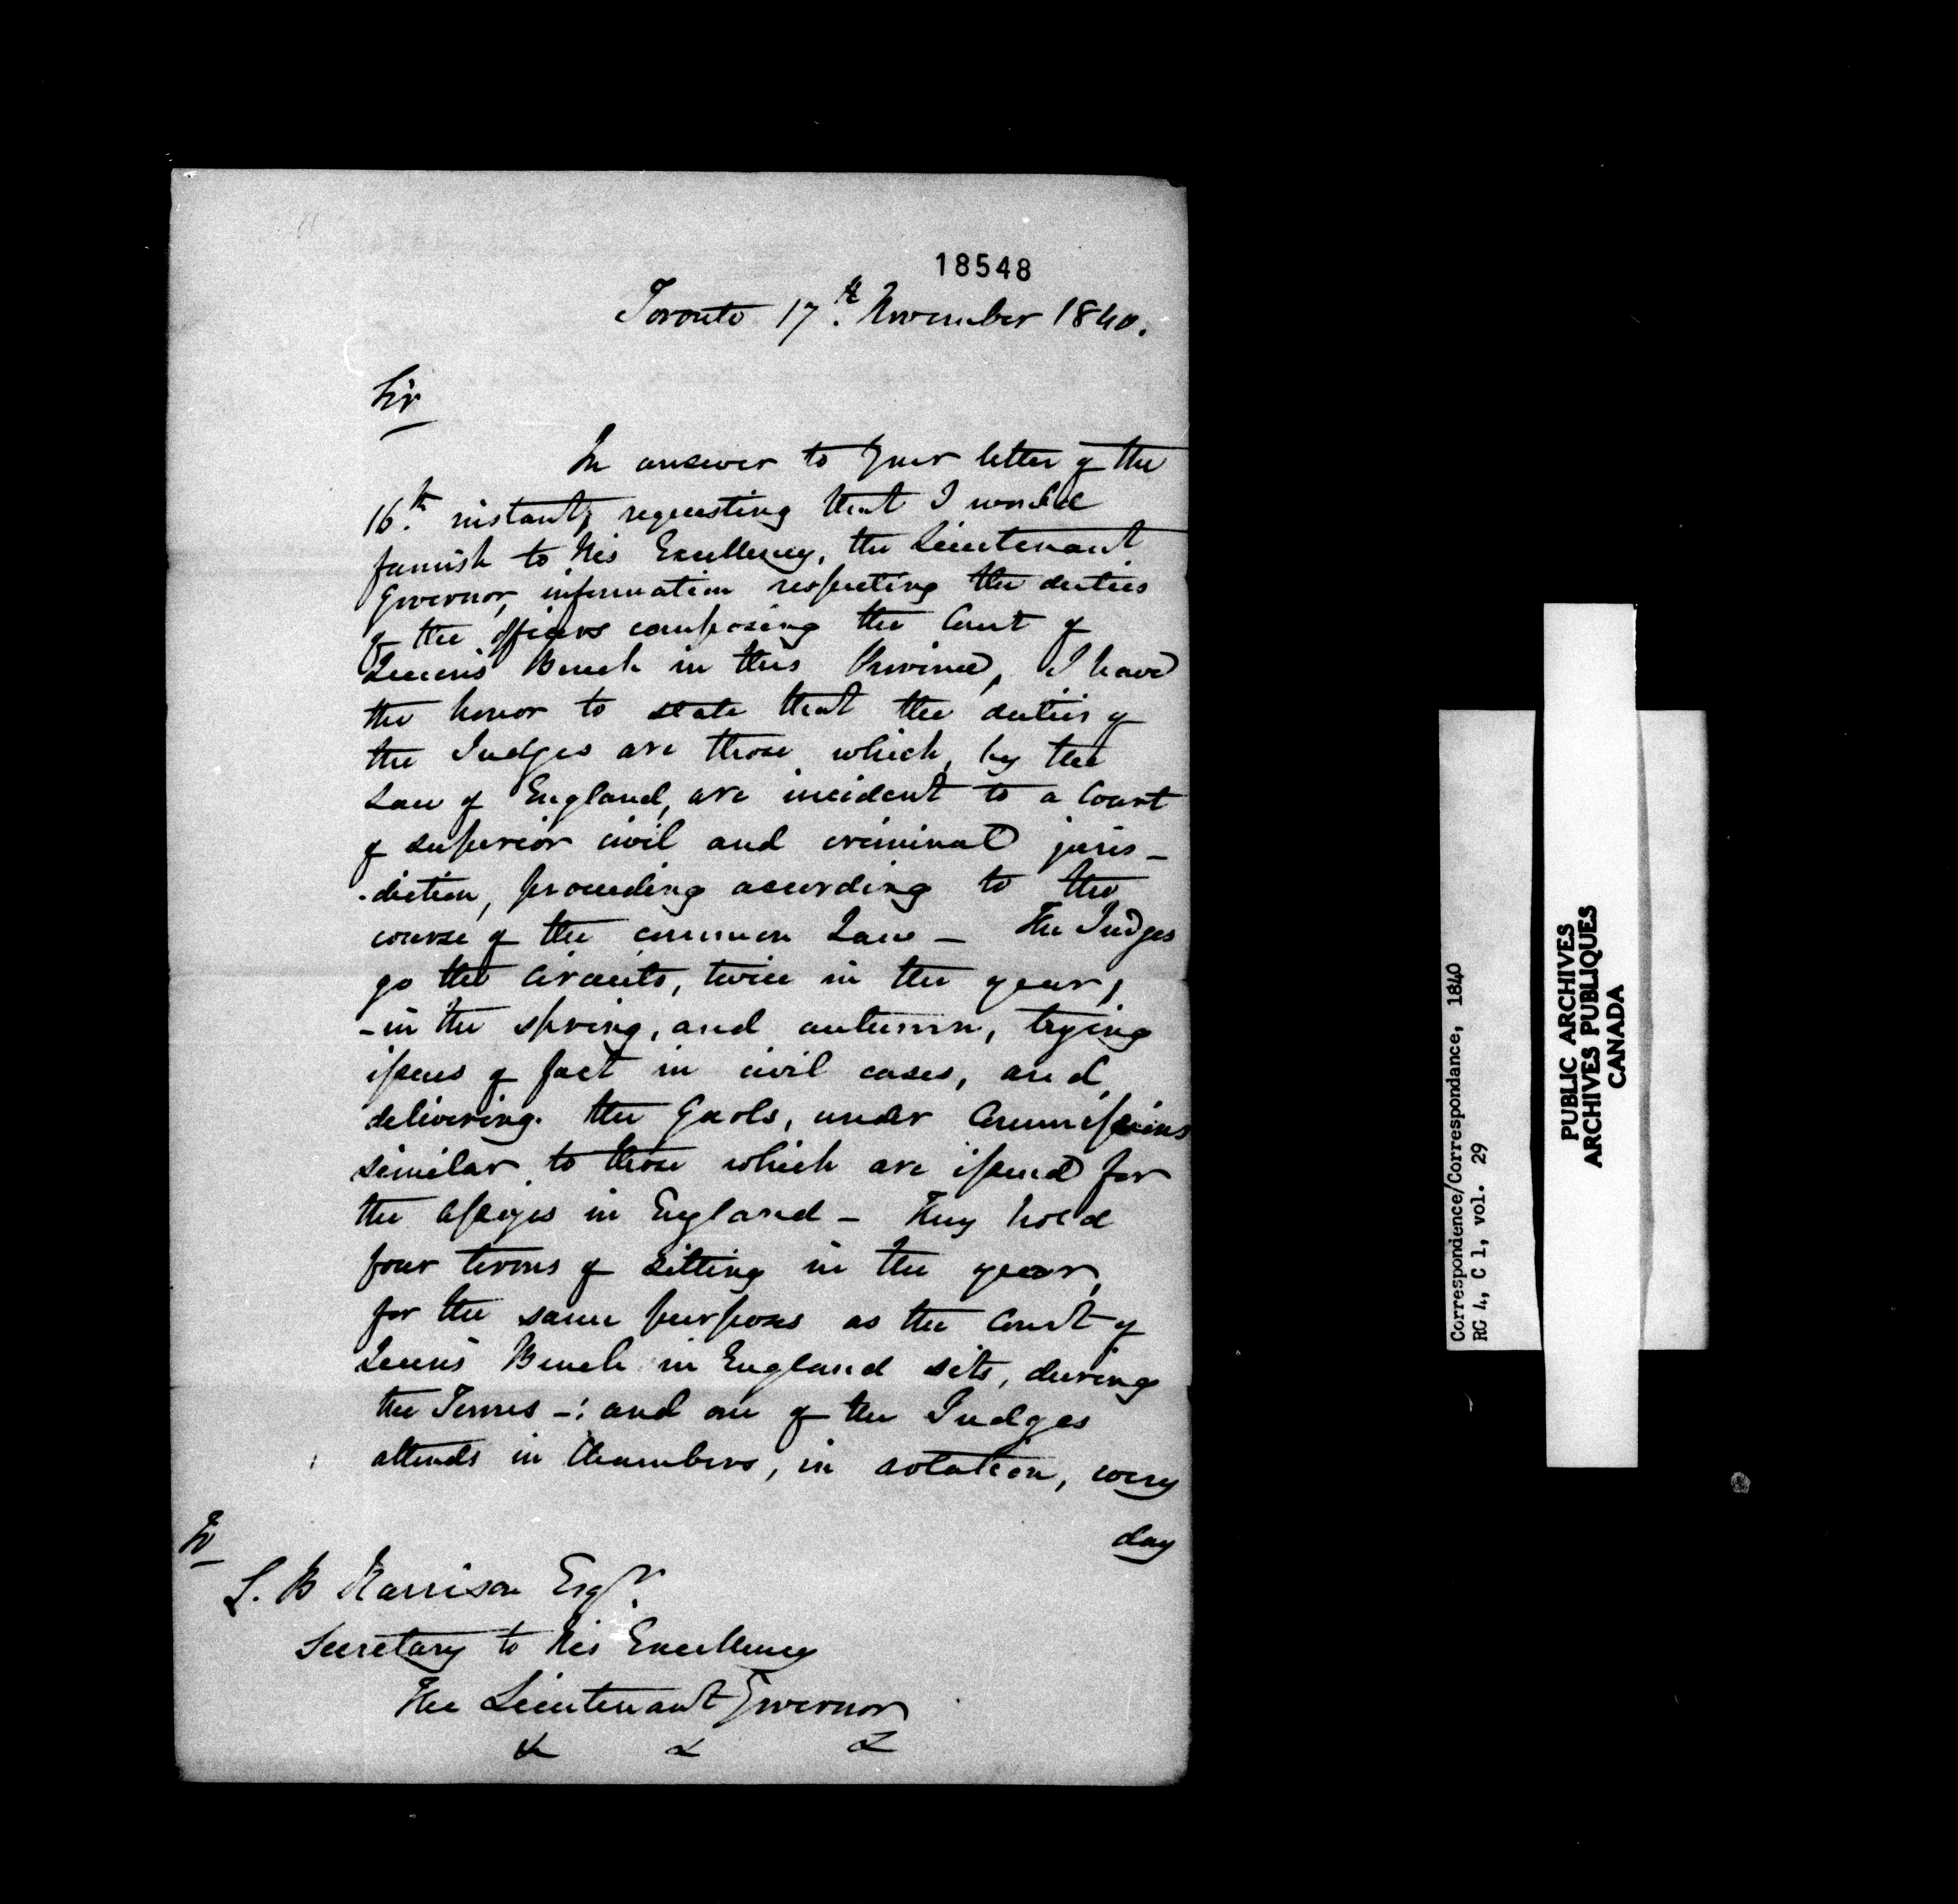 18548
Toronto 17th. November 1840.
Sir
In answer to your letter of the
16th. instant, requesting that I would
furnish to His Excellency, the Lieutenant
Governor, information respecting the duties
of the officers composing the Court of
Queen's Bench in this Province, I have
the honor to state that the duties of
the Judges are those which, by the
Law of England, are incident to a Court
of superior civil and criminal juris-
-diction, proceeding according to the
course of the common Law - The Judges
go the Circuits, twice in the year,
- in the spring, and autumn, trying
issues of fact in civil cases, and
delivering the Gaols, under Commissions
similar to those which are issued for
the assizes in England - They hold
four terms of sitting in the year,
for the same purposes as the Court of
Queen's Bench in England sits, during
the Terms -: and one of the Judges
attends in Chambers, in rotation, every
day
To
S. B Harrison Esqr.
Secretary to His Excellency
The Lieutenant Governor
& & &
Correspondence/Correspondance, 1840
RG 4, C 1, vol. 29
PUBLIC ARCHIVES
ARCHIVES PUBLIQUES
CANADA